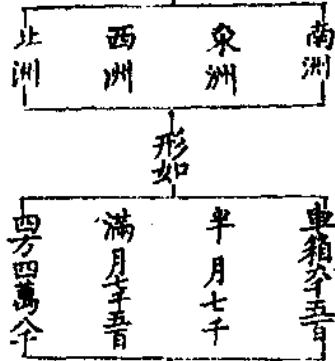 南洲
東洲
西洲
北洲
形如
車箱六千五百
半月七千
滿月七千五百
四方四萬八千